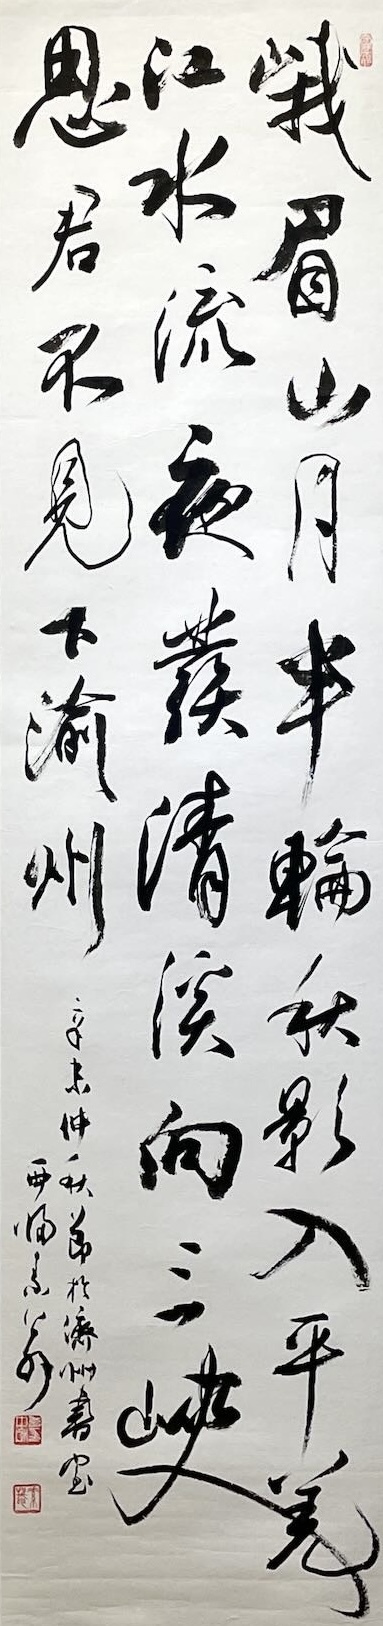 峨眉山月半輪秋影入平羌
江水流夜發清溪向三峽
思君不見下渝州
辛未仲秋節於濟州書室